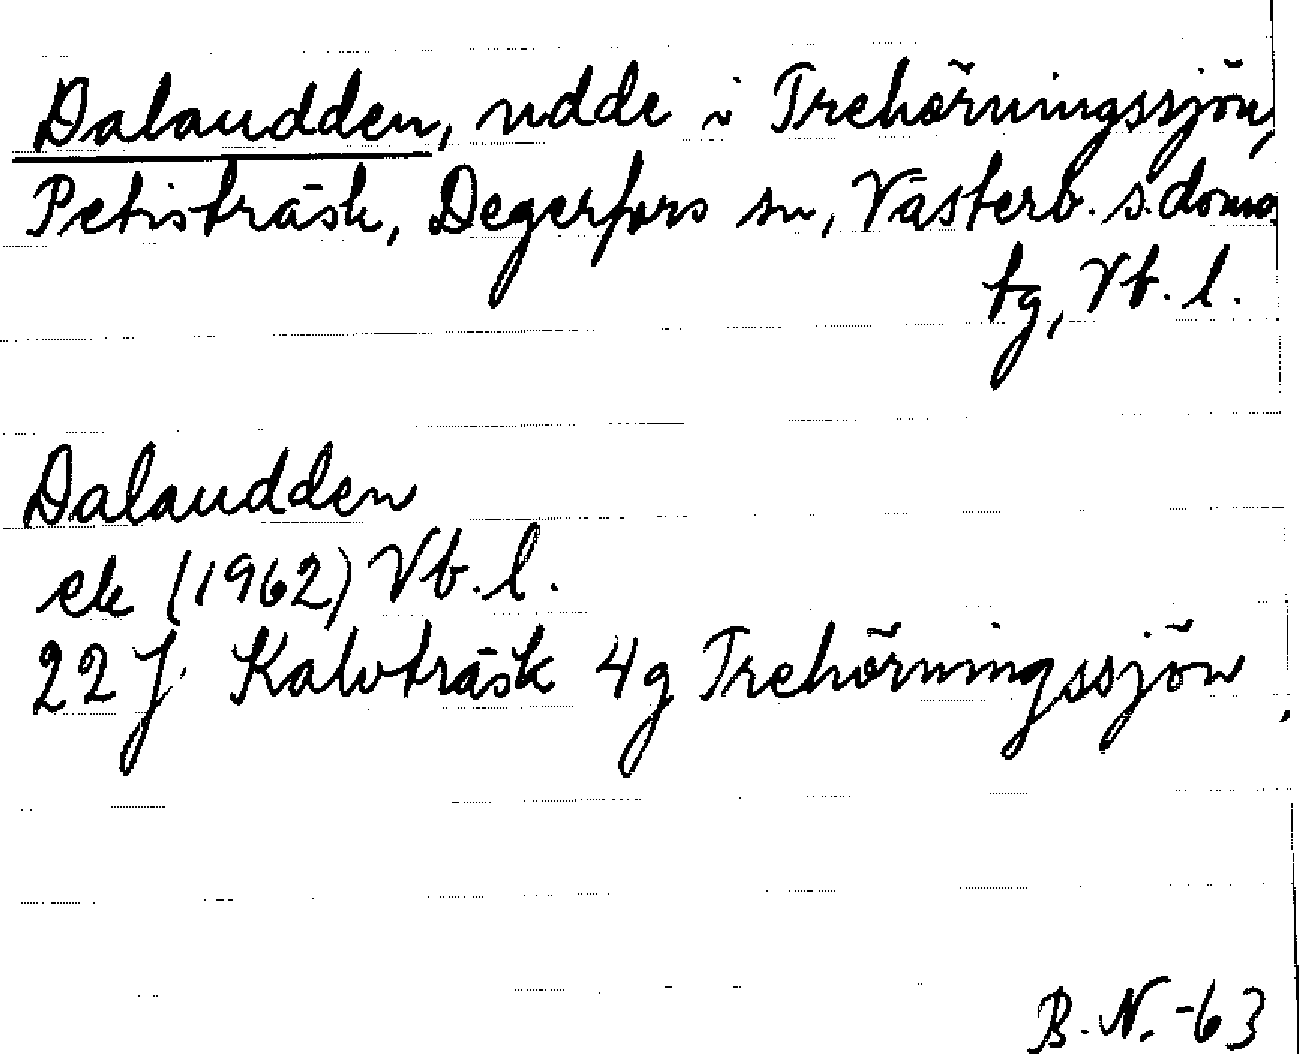 Dalaudden, udde i Trehörningssjön,
Petisträsk, Degerfors sn, Västerb. s. doms
tg, Vb. l.
Dalaudden
ek (1962) Vb. l.
22 J Kalvträsk 4g Trehörningssjön
B. N. -63